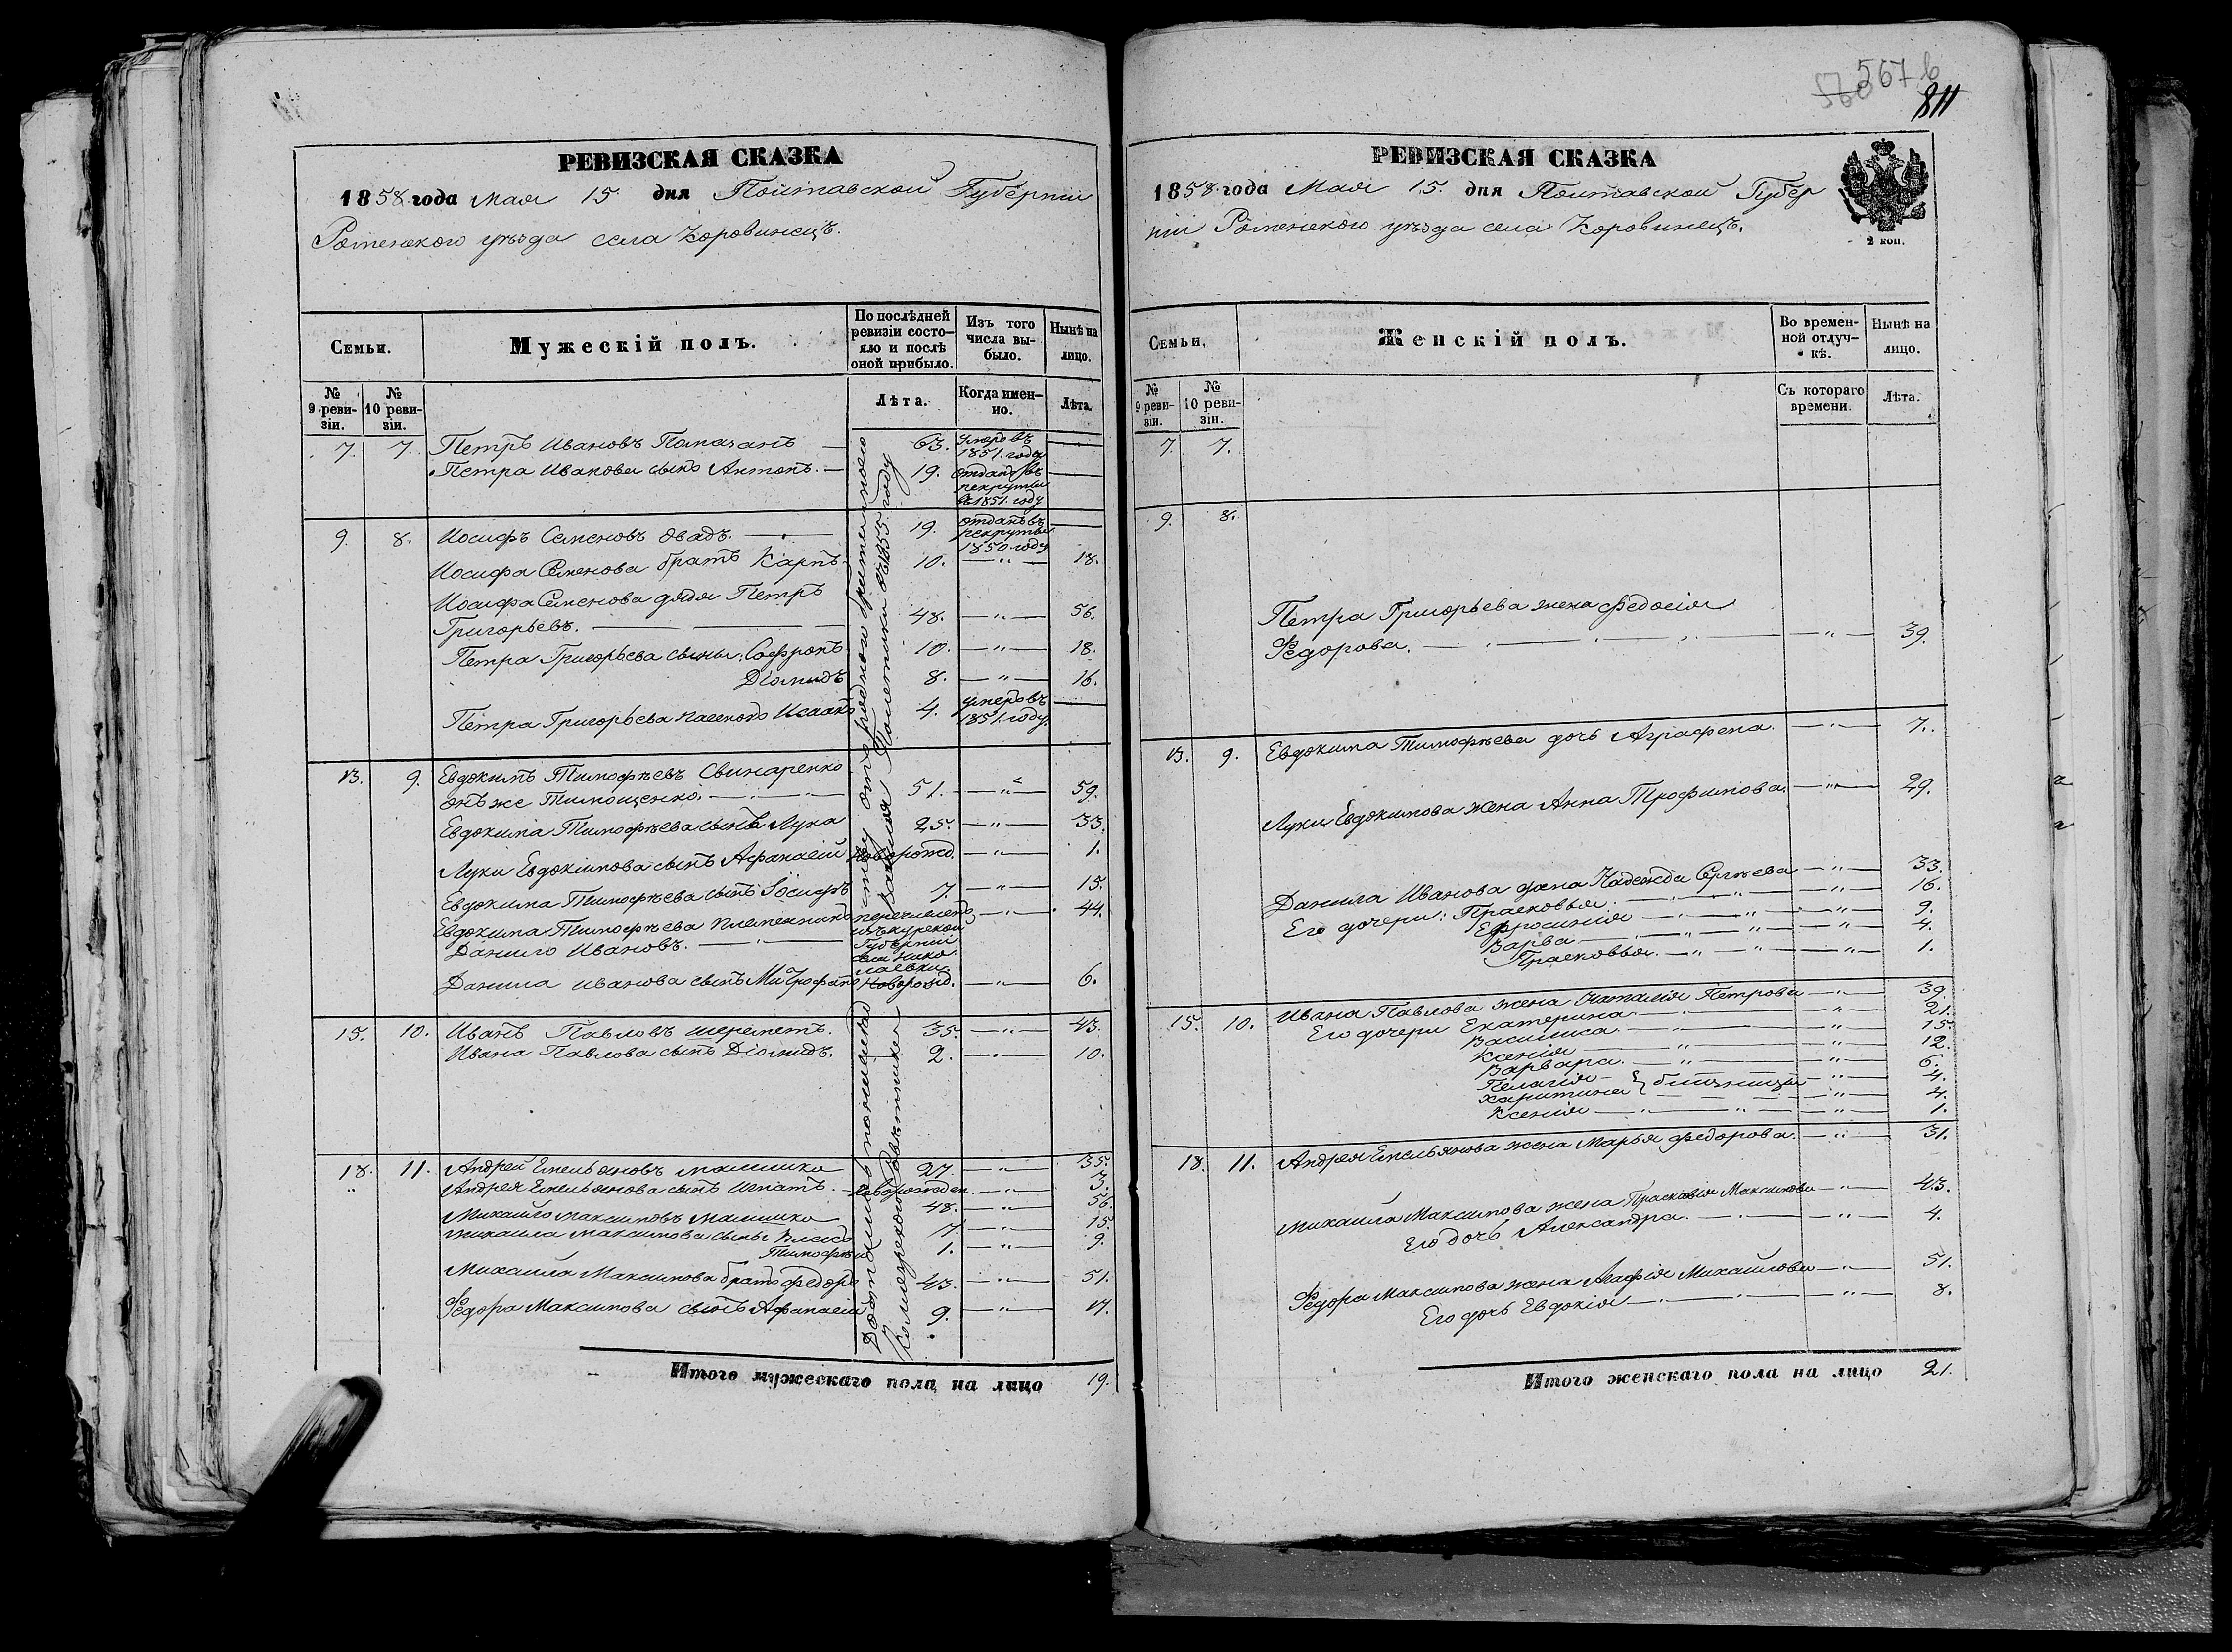 РЕВИЗСКАЯ СКАЗКА
1858 года Мая 15 дня Полтавской Губерніи
Роменского уѣзда села Коровинецъ.
Семьи.
Мужескій полъ.
По послѣдней ревизіи состо-
яло и послѣ оной прибыло.
Изъ того числа вы-
было.
Нынѣ на лицо.
№ 9 реви-
зіи.
№ 10 реви-
зіи.
Лѣта.
Когда имен-
но.
Лѣта.
7. 7. Петръ Ивановъ — 63. умеръ въ 1851. году
Петра Иванова сынъ Антонъ. — 19. отданъ въ рекруты въ 1851. году
9. 8. Иосифъ Семеновъ — 19. отданъ въ рекруты 1850. году
Иосифа Семенова братъ Карпъ. 10. — " — 18.
Иосифа Семенова дядя Петръ
Григорьевъ. — 48. — " — 56.
Петра Григорьева сыны: Софронъ 10. — " — 18.
Діомидъ 8. — " — 16.
Петра Григорьева Исаакъ 4. умеръ въ 1851. году.
13. 9. Евдокимъ Тимофѣевъ Свинаренко
онъ же Тимощенко. — 51. — " — 59.
Евдокима Тимофѣева сынъ Лука 25. — " — 33.
Луки Евдокимова сынъ Афанасій новорожд. — " — 1.
Евдокима Тимофѣева сынъ Іосифъ 7. — " — 15.
Евдокима Тимофѣева племенникъ перечисленъ — " — 44.
Данило Ивановъ. — изъ курской
губерніи
села Нико
лаевки.
Данила Иванова сынъ Митрофанъ новорожд. — " — 6.
15. 10. Иванъ Павловъ шереметъ. 35. — " — 43.
Ивана Павлова сынъ Діомидъ. 2. — " — 10.
18. 11. Андрей Емельяновъ 27. — " — 35.
" Андрея Емельянова сынъ Игнатъ. — новорожден. — " — 3.
Михайло Максимовъ 48. — " — 56.
Михаила Максимова сыны Власъ 7. — " — 15.
Тимофѣй 1. — " — 9.
Михаила Максимова братъ Федоръ 43. — " — 51.
Федора Максимова сынъ Афанасій 9. — " — 17.
Итого мужескаго пола на лицо 19.
Достались помещику
Коллежскому Советнику
ному отъ роднаго брата
Василия Полетики въ 1855 году
567 б
811
РЕВИЗСКАЯ СКАЗКА
1858 года Мая 15. дня Полтавской Губер
ніи Роменского уѣзда села Коровинецъ.
2 коп.
Семьи.
Женскій полъ.
Во времен-
ной отлуч-
кѣ.
Нынѣ на лицо.
№ 9 реви-
зіи.
№ 10 реви-
зіи.
Съ котораго времени.
Лѣта.
7. 7.
9. 8.
Петра Григорьева жена Федосія
Федорова. — " — 39.
13. 9. Евдокима Тимофѣева дочь Аграфена. — " — 7.
Луки Евдокимова жена Анна Трофимова. — " — 29.
Данила Иванова жена Надежда Сергѣева — " — 33.
Его дочери: Прасковья. — " — 16.
Ефросинія — " — 9.
Варва — " — 4.
Прасковья. — " — 1.
15. 10. Ивана Павлова жена Наталія Петрова — " — 39.
Его дочери Екатерина. — " — 21.
Василиса. — " — 15.
Ксенія — " — 12.
Варвара. — " — 6.
Пелагія } близницы — " — 4.
Харитина — " — 4.
Ксенія — " — 1.
18. 11. Андрея Емельянова жена Марья Федорова. — " — 31.
Михаила Максимова жена Прасковія Максимова — " — 43.
Его дочь Александра. — " — 4.
Федора Максимова жена Агафія Михайлова — " — 51.
Его дочь Евдокія — " — 8.
Итого женскаго пола на лицо 21.